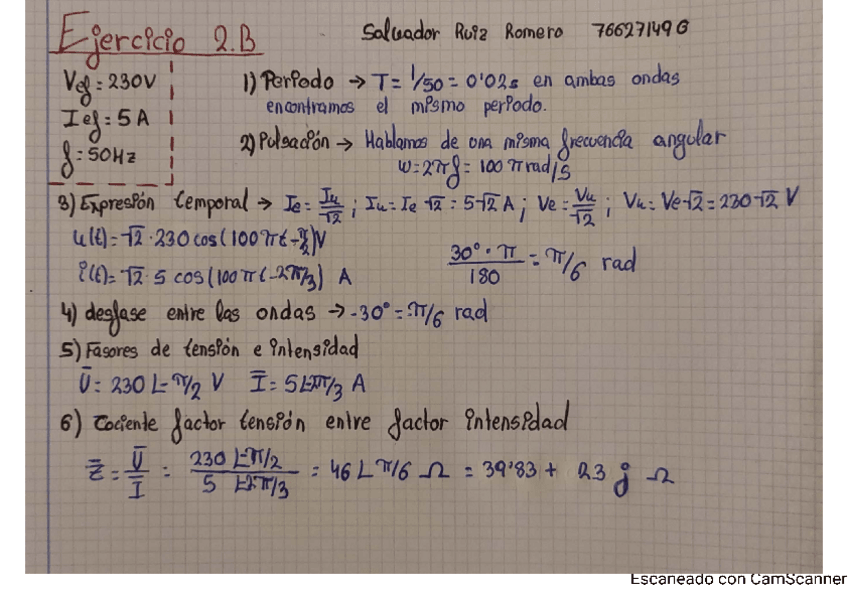 Ejercicio 2.B
Salvador Ruiz Romero 76627149G
Vef = 230V
Ief = 5 A
f = 50Hz
1) Periodo → T = 1/50 = 0'02s en ambas ondas
encontramos el mismo periodo.
2) Pulsación → Hablamos de una misma frecuencia angular
ω = 2πf = 100 π rad/s
3) Expresión temporal → Ie = Iu/√2 ; Iu = Ie √2 = 5√2 A ; Ve = Vu/√2 ; Vu = Ve√2 = 230√2 V
u(t) = √2 · 230 cos(100πt - π/2) V
30° · π / 180 = π/6 rad
i(t) = √2 · 5 cos(100πt - 2π/3) A
4) desfase entre las ondas → -30° = -π/6 rad
5) Fasores de tensión e intensidad
U̅ = 230 ∟-π/2 V I̅ = 5 ∟-2π/3 A
6) Cociente factor tensión entre factor intensidad
Z̅ = U̅/I̅ = 230 ∟-π/2 / 5 ∟-2π/3 = 46 ∟π/6 Ω = 39'83 + 23 j Ω
Escaneado con CamScanner